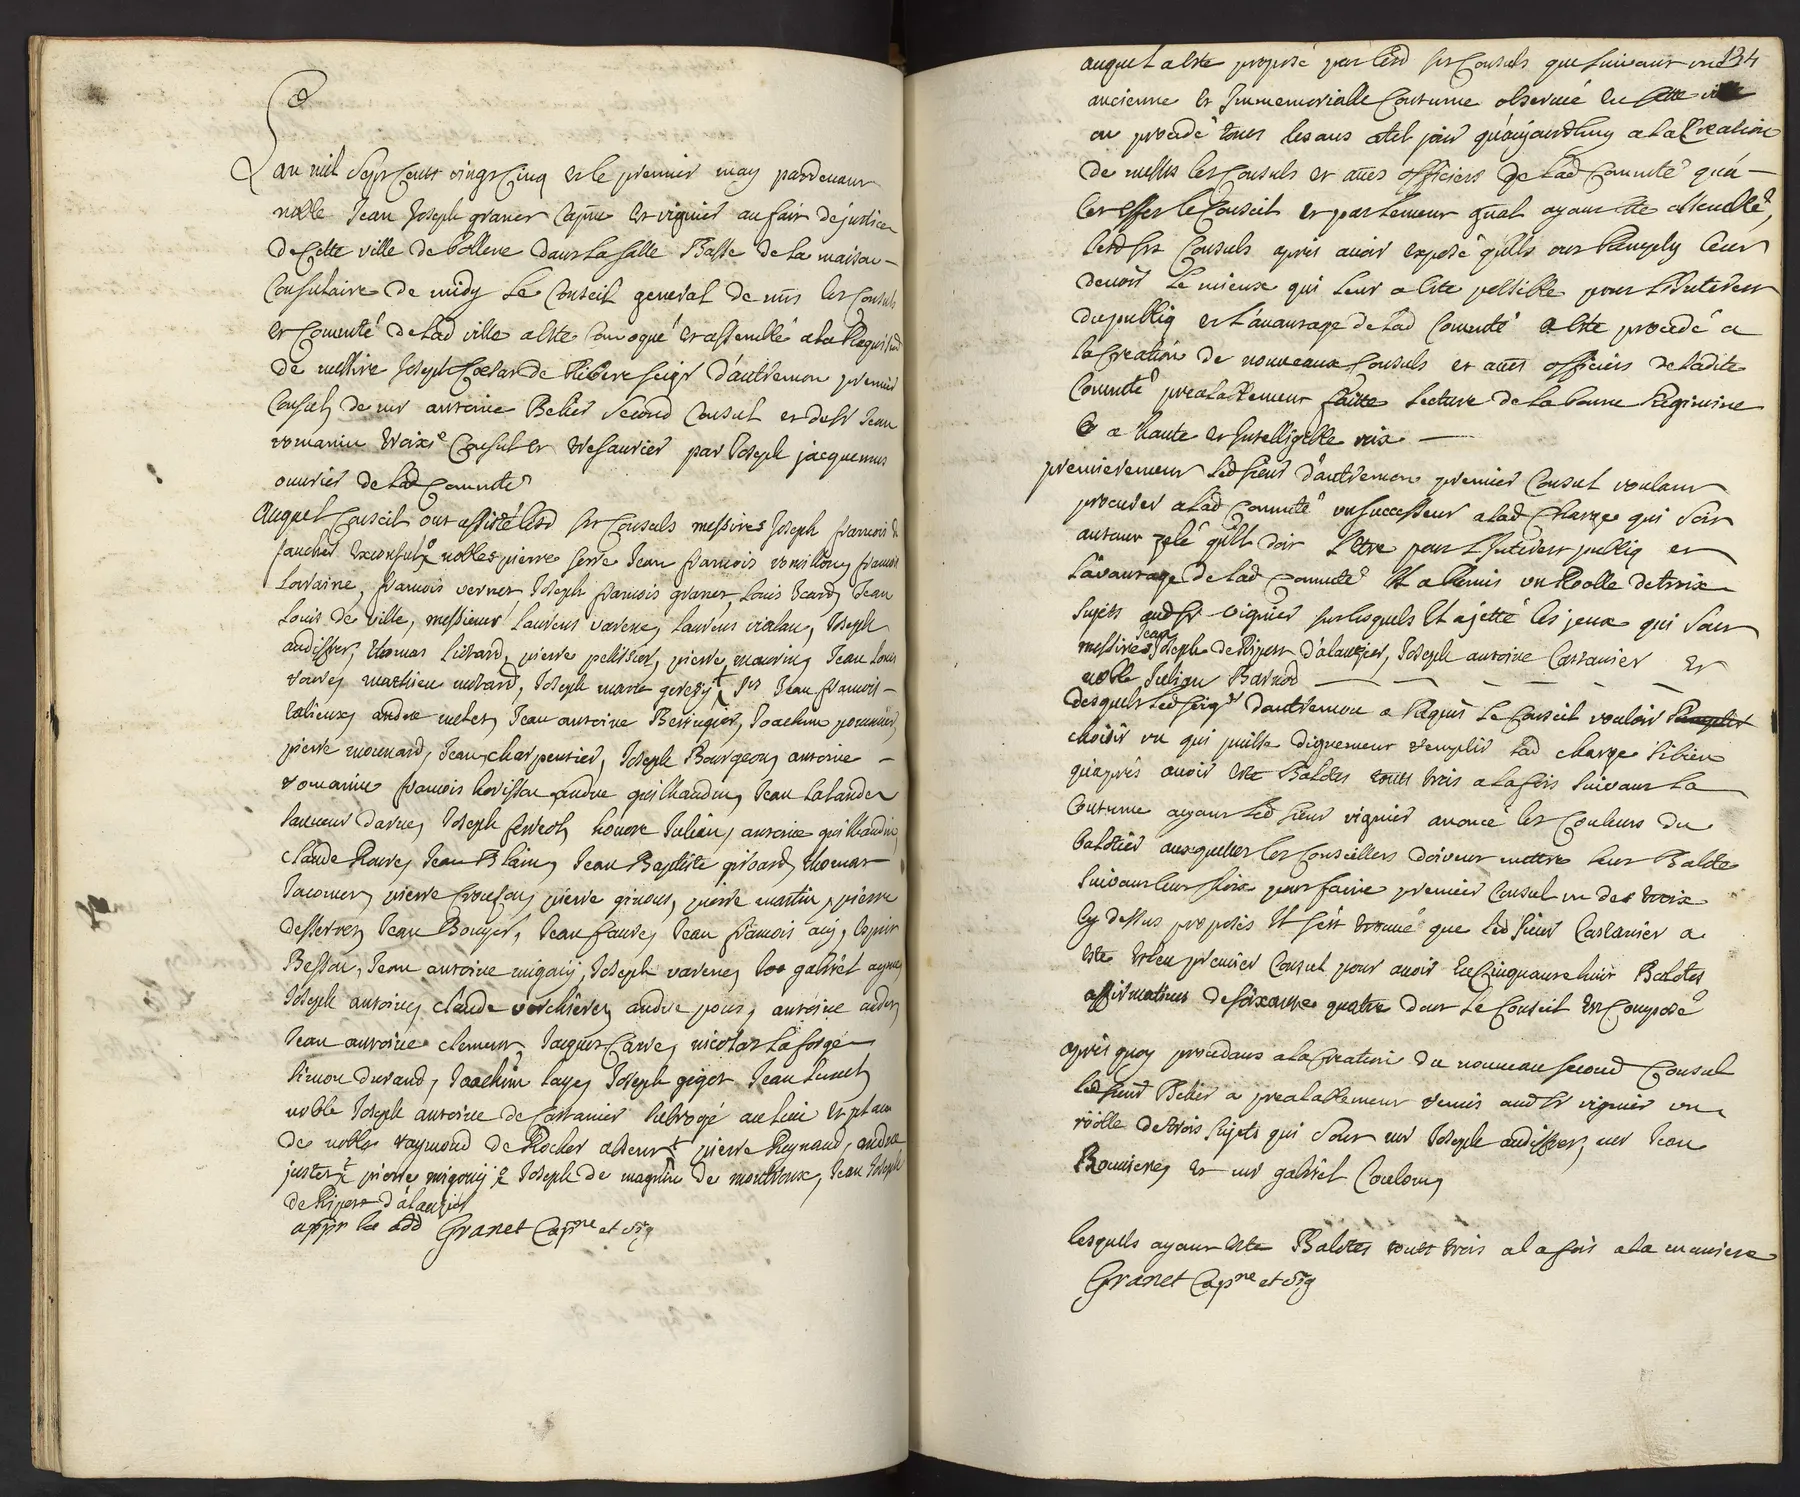 Lan mil sept cent vingt cinq et le premier may pardevant
noble Jean Joseph granet capne et viguier au fait de justice
de cette ville de bollene dans la salle Basse de la maison
Consulaire de midy le Conseil general de mrs les Consuls
et Comnté de lad ville a esté convoqué et assemblé a la Requisition
de messire Joseph de Ribere seigr d'autremon premier
Consul, de mr antoine Belier second Consul et de sr Jean
romanin troixe Consul et tresaurier par Joseph jacquemus
ouvrier de lad Comunté
Auquel Conseil ont assisté lesd srs Consuls messires Joseph francois de
faucher exconsul nobles pierre serre Jean francois roussillon, francois
Lorraine, francois vernet Joseph francois granet, Louis Icard, Jean
Louis de ville, messieurs Laurens varene, Laurens vialau, Joseph
audiffret, thomas lieutard, pierre pelissier, pierre maurin, Jean Louis
mathieu morard, Joseph marie srs Jean francois
andre melet, Jean antoine Berringier, Joachim
pierre mounard, Jean charpentier, Joseph Bourgeon, antoine
romanin francois andre guilhaudin, Jean Lalande
Joseph ferreol, honoré Julien, antoine guilhaudin,
claude Jean Blain, Jean Baptiste girard, thomas
Jacomet, pierre pierre ginoux, pierre martin, pierre
desserres, Jean Bouyer, Jean faure, Jean francois aug, esprit
Besson, Jean antoine migoin, Joseph varene, gabriel ayme,
Joseph antoine, claude verchiere, andre pons, antoine
Jean antoine clement, Jaques Carre, nicolas Laforge
simon durand, Joachim laye, Joseph gigot Jean
noble Joseph antoine de Castanier subrogé au lieu et place
de noble raymond de Rocher absent pierre Reynaud, andre
pierre migoin, Joseph de magnin de montroux, Jean Joseph
de Ripert d'alauzier
Granet Capne et vig
134
auquel a esté proposé par lesd srs Consuls que suivant une
ancienne et Immemorialle Coutume observée en cette ville
on procede tous les ans a tel jour qu'aujourdhuy a la Creation
de messrs les Consuls et aues officiers de lad Comunté qu'a
cet effet le Conseil et parlement gnal ayant esté assemblé,
lesd srs Consuls apres avoir exposé qu'ils ont Remply leur
devoir le mieux qui leur a esté possible pour l'Interest
du publiq et l'avantage de lad Comunté a esté procedé a
la Creation de nouveaux Consuls et aues officiers de ladite
Comunté prealablement faitte lecture de la bonne Regimine
a haute et Intelligible voix
premierement led sieur d'autremon premier Consul voulant
procurer a lad Comunté un successeur a lad Charge qui soit
autant zelé qu'il doit l'etre pour l'Interest publiq et
l'avantage de lad Comunté Il a Remis un Roolle de trois
sujets aud sr viguier sur lesquels Il a jetté les yeux qui sont
messires Jean Joseph de Ripert d'alauzier, Joseph antoine Castanier et
noble Julien Barnod
desquels led seigr dautremon a Requis le Conseil vouloir
choisir un qui puisse dignement remplir lad charge si bien
qu'apres avoir esté Balotés touts trois a la fois suivant la
Coutume ayant led sieur viguier anoncé les Couleurs du
balotier auxquelles les Conseillers doivent mettre leur Balote
suivant leur choix pour faire premier Consul un des trois
cy dessus proposés Il s'est trouvé que led sieur Castanier a
esté esleu premier Consul pour avoir Eu Cinquante huit Balotes
affirmatives de soixante quatre dont le Conseil est Composé
apres quoy procedant a la Creation du nouveau second Consul
led sieur Belier a prealablement remis aud sr viguier un
roolle de trois sujets qui sont mr Joseph audiffret, mr Jean
Romieu, et mr gabriel Coulomb
lesquels ayant esté Balotés touts trois a la fois a la maniere
Granet Capne et vig